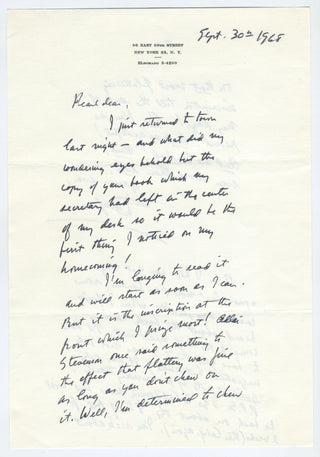 Sept. 30th 1968
NEW YORK 22, N. Y.
ELDORADO 5-4200
Pearl dear,
I just returned to town
last night — and what did my
wondering eyes behold but the
copy of your book which my
secretary had left in the center
of my desk so it would be the
first thing I noticed on my
homecoming!
I'm longing to read it
and will start as soon as I can.
But it is the inscription at the
front which I prize most! Adlai
Stevenson once said something to
the effect that flattery was fine
as long as you don't chew on
it. Well, I'm determined to chew